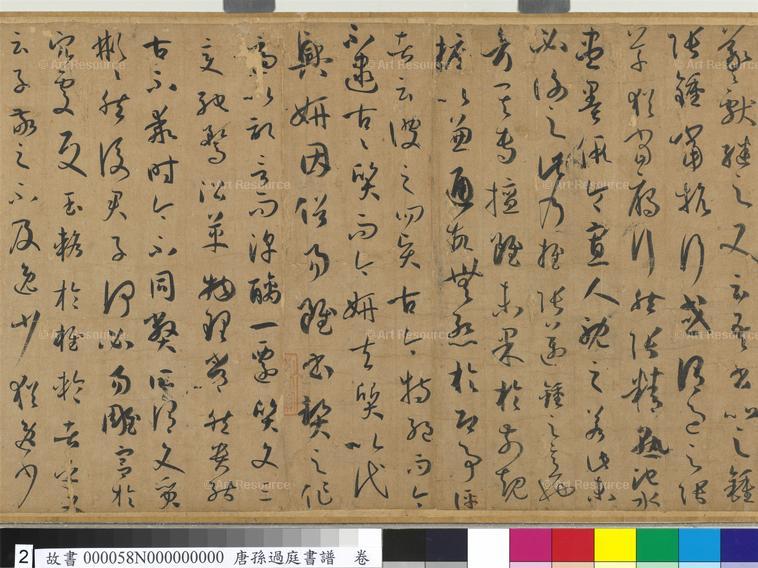 羲獻繼之又云吾書比之鍾
張鍾當抗行或謂過之張
草猶當鴈行然張精熟池水
盡墨假令寡人耽之若此未
必謝之此乃推張邁鍾之意也
考其專擅雖未果於前規
摭以兼通故無慚於即事評
者云彼之四賢古今特絕而今
不逮古古質而今妍夫質以代
興妍因俗易雖書契之作
適以記言而淳醨一遷質文三
變馳鶩沿革物理常然貴能
古不乖時今不同弊所謂文質
彬彬然後君子何必易雕宮於
穴處反玉輅於椎輪者乎又
云子敬之不及逸少猶逸少
2 故書 000058N000000000 唐孫過庭書譜 卷
© Art Resource